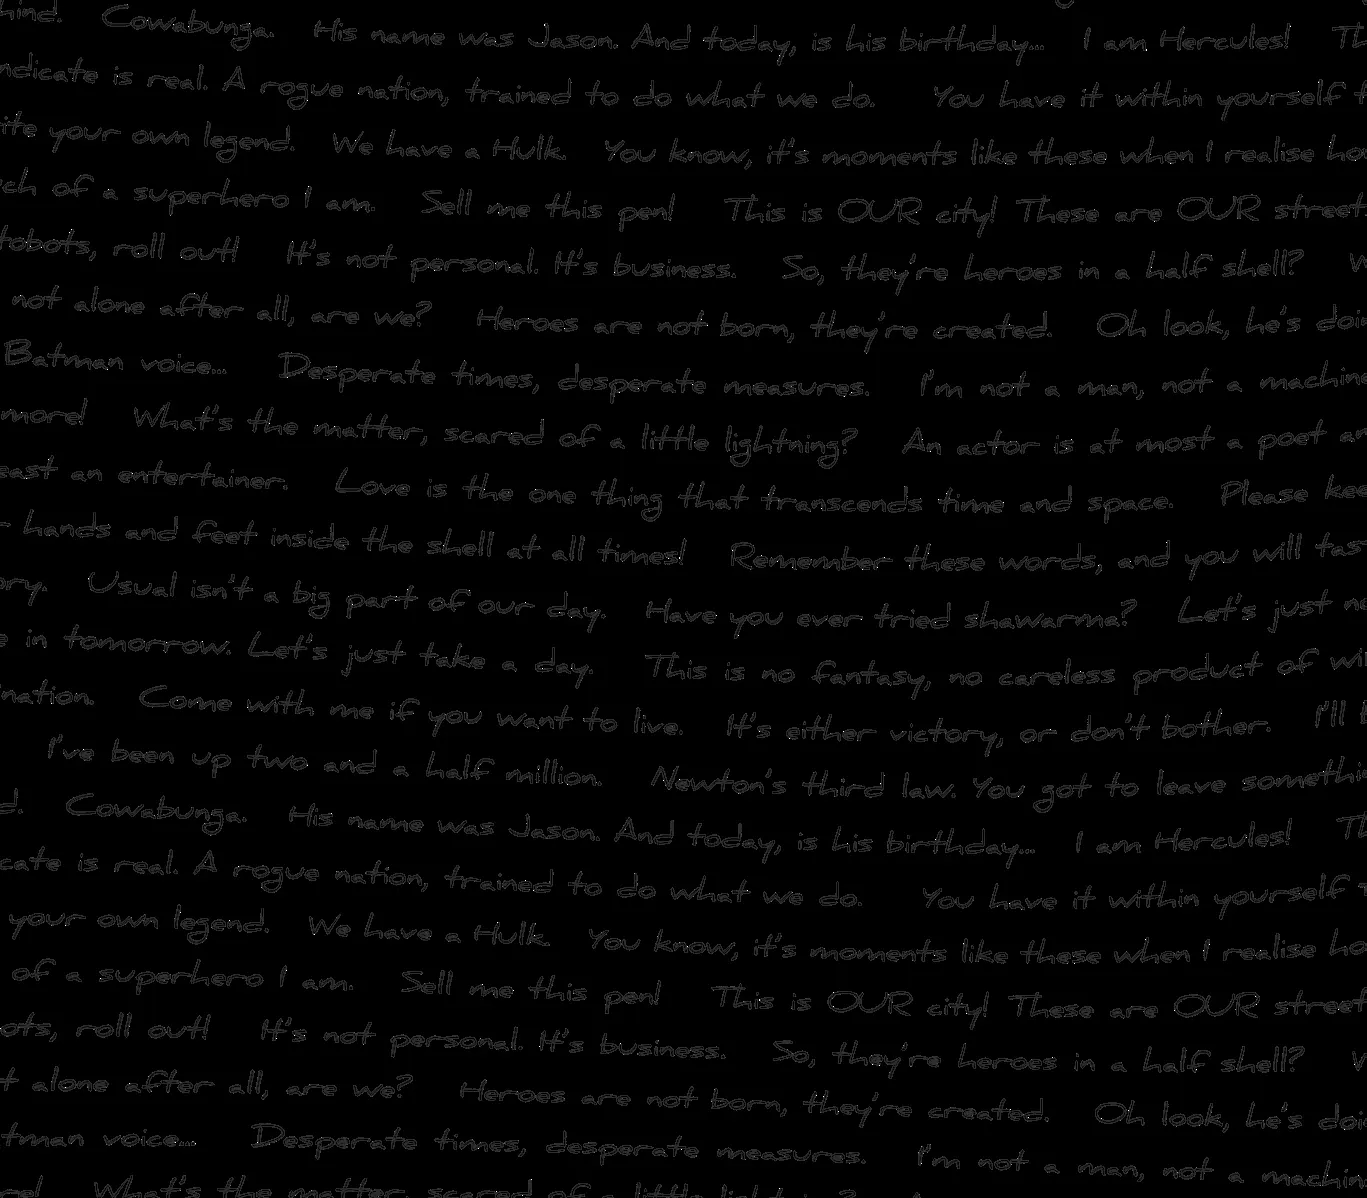 hind. Cowabunga. His name was Jason. And today, is his birthday... I am Hercules! Th
ndicate is real. A rogue nation, trained to do what we do. You have it within yourself t
ite your own legend. We have a Hulk. You know, it's moments like these when I realise how
ch of a superhero I am. Sell me this pen! This is OUR city! These are OUR street
tobots, roll out! It's not personal. It's business. So, they're heroes in a half shell? W
not alone after all, are we? Heroes are not born, they're created. Oh look, he's doin
Batman voice... Desperate times, desperate measures. I'm not a man, not a machine
more! What's the matter, scared of a little lightning? An actor is at most a poet an
east an entertainer. Love is the one thing that transcends time and space. Please kee
r hands and feet inside the shell at all times! Remember these words, and you will tas
ory. Usual isn't a big part of our day. Have you ever tried shawarma? Let's just no
e in tomorrow. Let's just take a day. This is no fantasy, no careless product of wil
nation. Come with me if you want to live. It's either victory, or don't bother. I'll b
I've been up two and a half million. Newton's third law. You got to leave somethin
d. Cowabunga. His name was Jason. And today, is his birthday... I am Hercules! Th
cate is real. A rogue nation, trained to do what we do. You have it within yourself t
your own legend. We have a Hulk. You know, it's moments like these when I realise ho
of a superhero I am. Sell me this pen! This is OUR city! These are OUR street
ots, roll out! It's not personal. It's business. So, they're heroes in a half shell? W
t alone after all, are we? Heroes are not born, they're created. Oh look, he's doin
tman voice... Desperate times, desperate measures. I'm not a man, not a machin
re! What's the matter, scared of a little